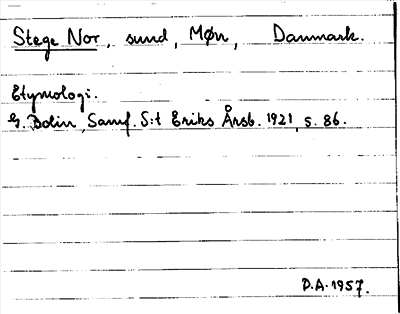 Stege Nor, sund, Møn, Danmark.
Etymologi.
G. Bolin, Samf. S:t Eriks Årsb. 1921, s. 86.
D.A. 1957.